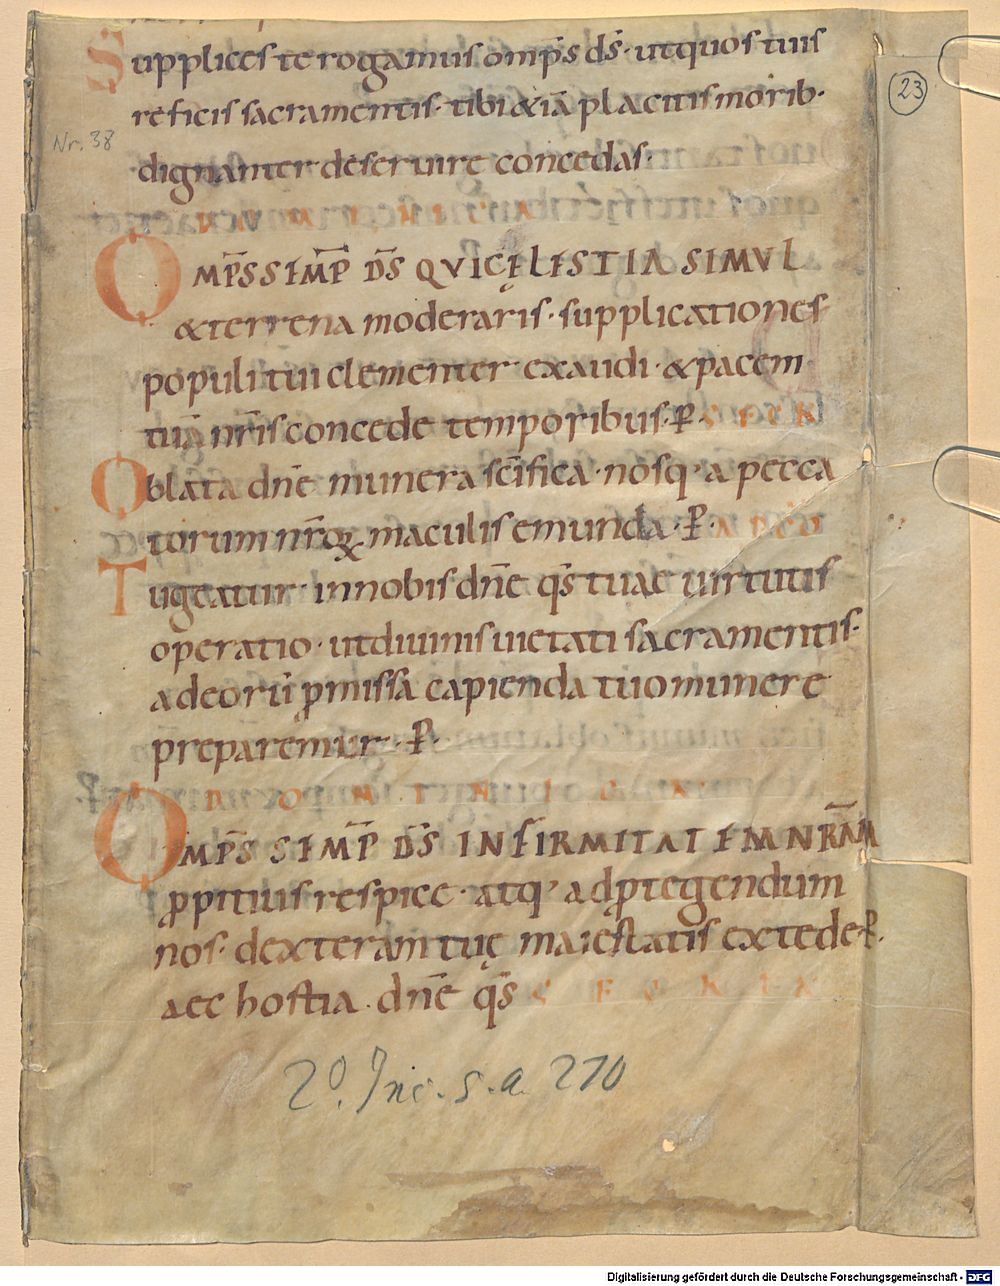 Supplices te rogamus omp̄s d̄s· ut quos tuis
23
reficis sacramentis· tibi &iā placitis morib·
Nr. 38
dignanter deseruire concedas·
OMP̄S SEMP̄ D̄S QVI CĘLESTIA SIMVL
& terrena moderaris· supplicationes
populi tui clementer exaudi· & pacem
tuā nr̄is concede temporibus· P̄·
Oblata dn̄e munera sc̄ifica· nosq· a pecca
torum nr̄oꝝ maculis emunda· P̄·
Tugeatur in nobis dn̄e q̄s tuae uirtutis
operatio· ut diuinis uietati sacramentis·
ad eorū p̄missa capienda tuo munere
preparemur· P̄·
DOMINICA
OMP̄S SEMP̄ D̄S INFIRMITATEM NR̄AM
ꝓpitius respice· atq· ad ꝓtegendum
nos· dexteram tuę maiestatis extede· P̄·
aec hostia· dn̄e q̄s
2° Inc. s. a. 270
Digitalisierung gefördert durch die Deutsche Forschungsgemeinschaft - DFG